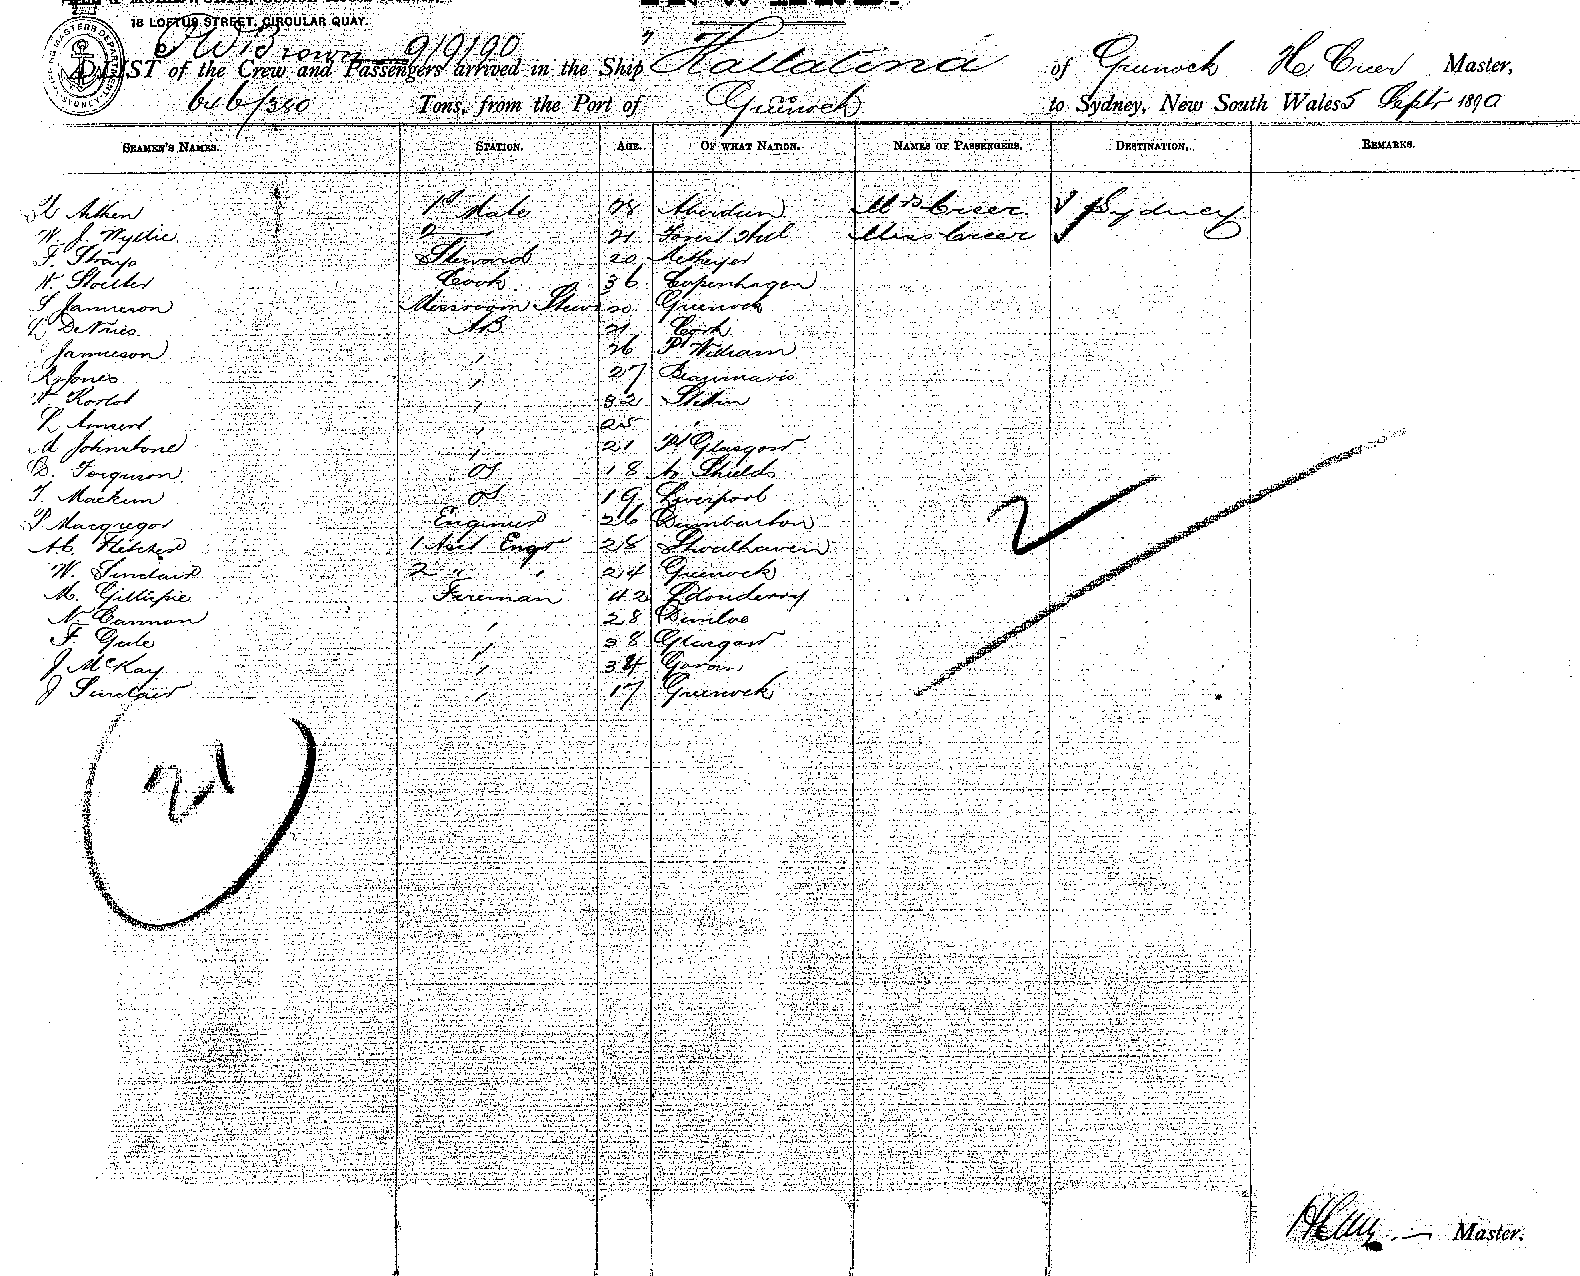 18 LOFTUS STREET, CIRCULAR QUAY.
INWARD.
Brown 9/9/90
A LIST of the Crew and Passengers arrived in the Ship "Kallatina of Greenock H Creer Master,
646/380 Tons, from the Port of Greenock to Sydney, New South Wales 5 Septr 1890
SEAMEN'S NAMES. STATION. AGE. OF WHAT NATION. NAMES OF PASSENGERS. DESTINATION. REMARKS.
Aitken 1st Mate 28 Aberdeen Mrs Creer Sydney
W. J. Wyllie 2 21 Forest Hill Miss Creer
F. Sharp Steward 20
W. Cook 36 Copenhagen
Jamieson Messroom Stew 20 Greenock
De Vries AB 21 Cork
Jamieson " 26 Ft William
R. Jones " 27 Beaumaris
" 32 Stettin
" 25 "
M Johnstone " 21 Pt Glasgow
D. Ferguson OS 18 N. Shields
T. Mackim OS 19 Liverpool
P Macgregor Engineer 26 Dumbarton
Fletcher 1 Asst Engr 28 Shoalhaven
W. Sinclair 2 " " 24 Greenock
M. Gillespie Fireman 42 Ldonderry
N. Cannon " 28 Dunloe
F. Gale " 38 Glasgow
J McKay " 34 Govan
J Sinclair " 17 Greenock
2
21
H Creer Master.